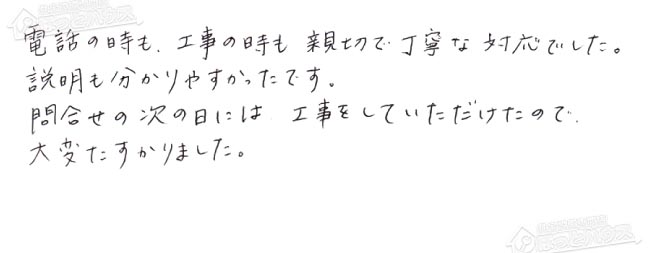 電話の時も、工事の時も 親切で丁寧な対応でした。
説明も分かりやすかったです。
問合せの次の日には、工事をしていただけたので、
大変たすかりました。